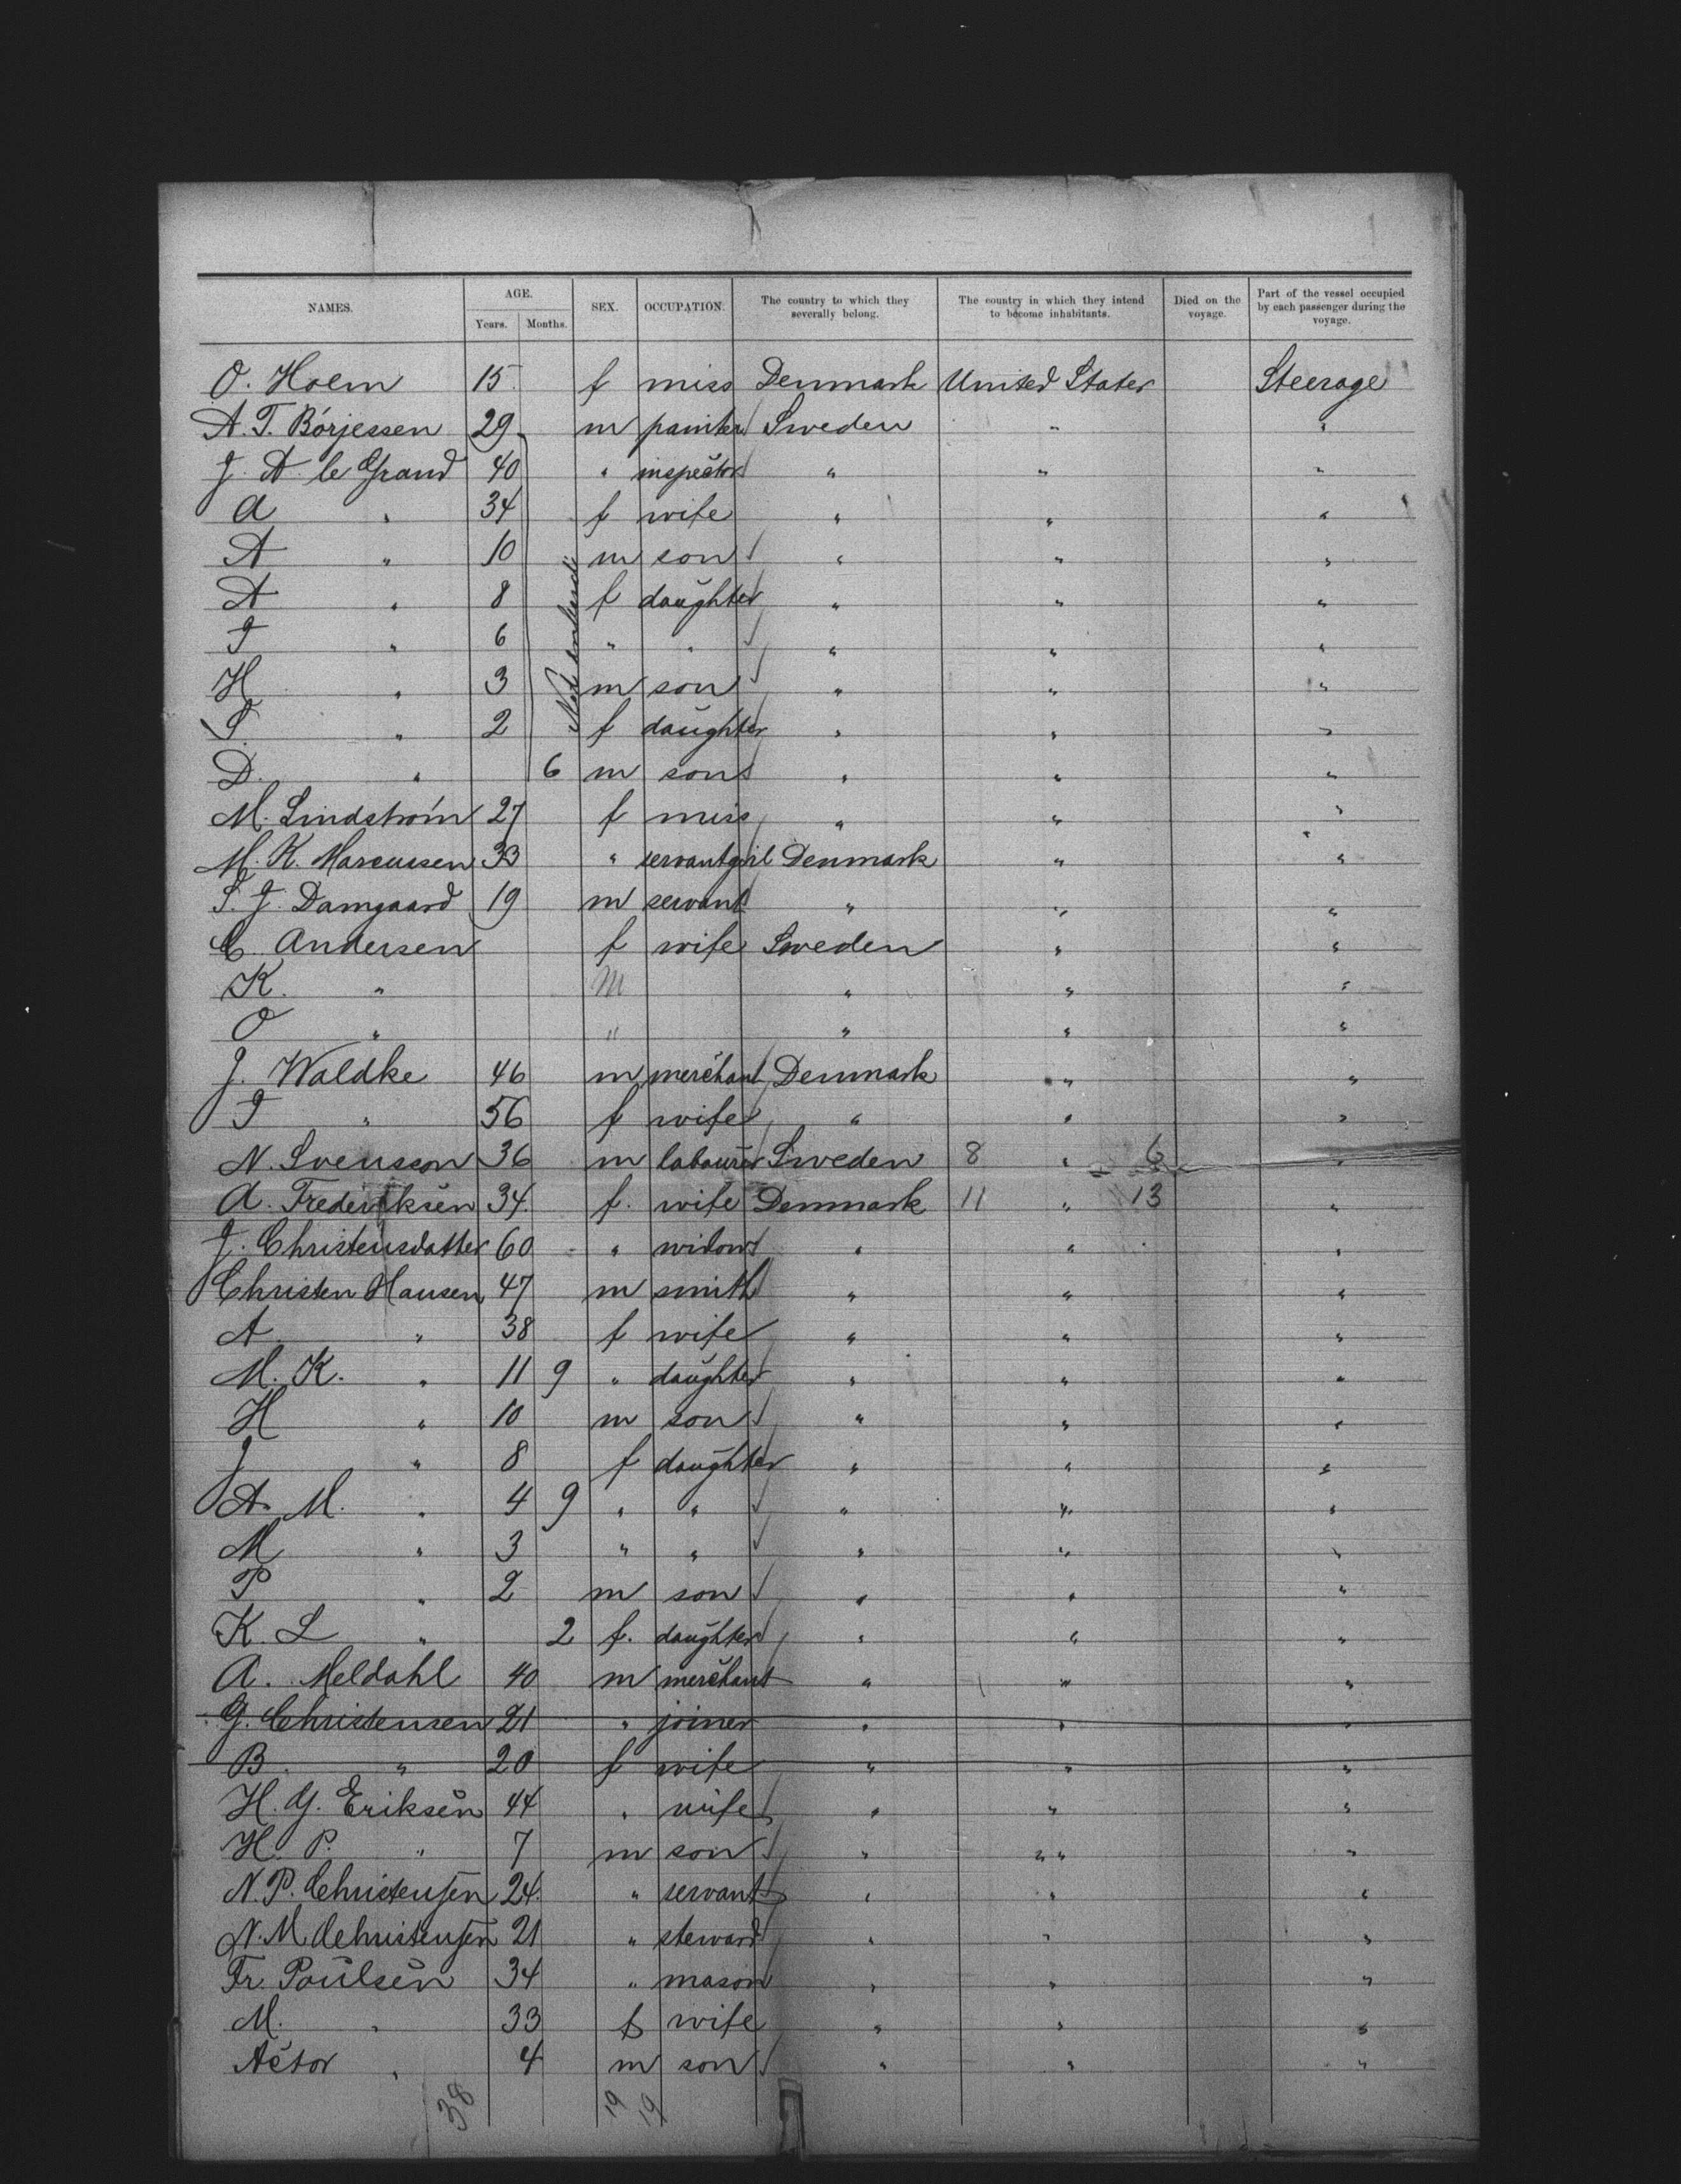 NAMES. AGE. SEX. OCCUPATION. The country to which they severally belong. The country in which they intend to become inhabitants. Died on the voyage. Part of the vessel occupied by each passenger during the voyage.
Years. Months.
O. Holm 15 f miss Denmark United States Steerage
A. T. Börjessen 29 m painter Sweden " "
J. A. le Grand 40 " inspector " " "
A " 34 f wife " " "
A " 10 m son " " "
A " 8 f daughter " " "
J " 6 " " " " "
H " 3 m son " " "
S " 2 f daughter " " "
D. " 6 m son " " "
Not embarked
M. Lindström 27 f miss " " "
M. K. Marcussen 33 " servantgirl Denmark " "
S. J. Damgaard 19 m servant " " "
C. Andersen f wife Sweden " "
K. " m " " "
O " " " " "
J. Waldke 46 m merchant Denmark " "
J " 56 f wife " " "
N. Svensson 36 m labourer Sweden 8 " 6 "
A. Frederiksen 34. f. wife Denmark 11 " 13 "
J. Christensdatter 60 " widow " " "
Christen Hansen 47 m smith " " "
A " 38 f wife " " "
M. K. " 11 9 " daughter " " "
H " 10 m son " " "
J " 8 f daughter " " "
A. M. " 4 9 " " " " "
M " 3 " " " " "
P " 2 m son " " "
K. L " 2 f. daughter " " "
A. Meldahl 40 m merchant " " "
G. Christensen 21 " joiner " " "
B. " 20 f wife " " "
H. G. Eriksen 44 " wife " " "
H. P. " 7 m son " " "
N. P. Christensen 24. " servant " " "
N. M. Christensen 21 " steward " " "
Fr. Poulsen 34 " mason " " "
M. " 33 f wife " " "
Actor " 4 m son " " "
38 19 19